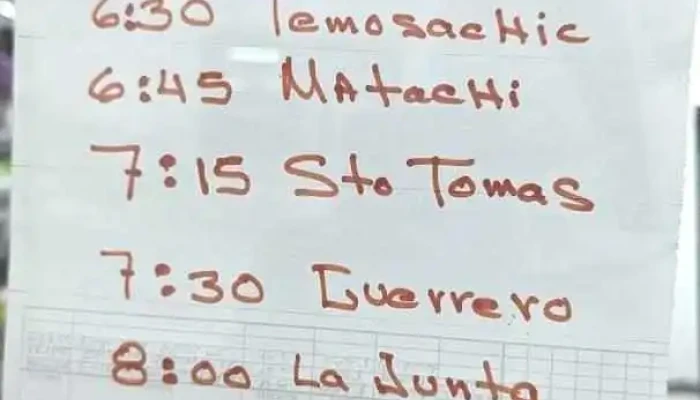 6:30 Temosachic
6:45 Matachi
7:15 Sto Tomas
7:30 Guerrero
8:00 La Junta